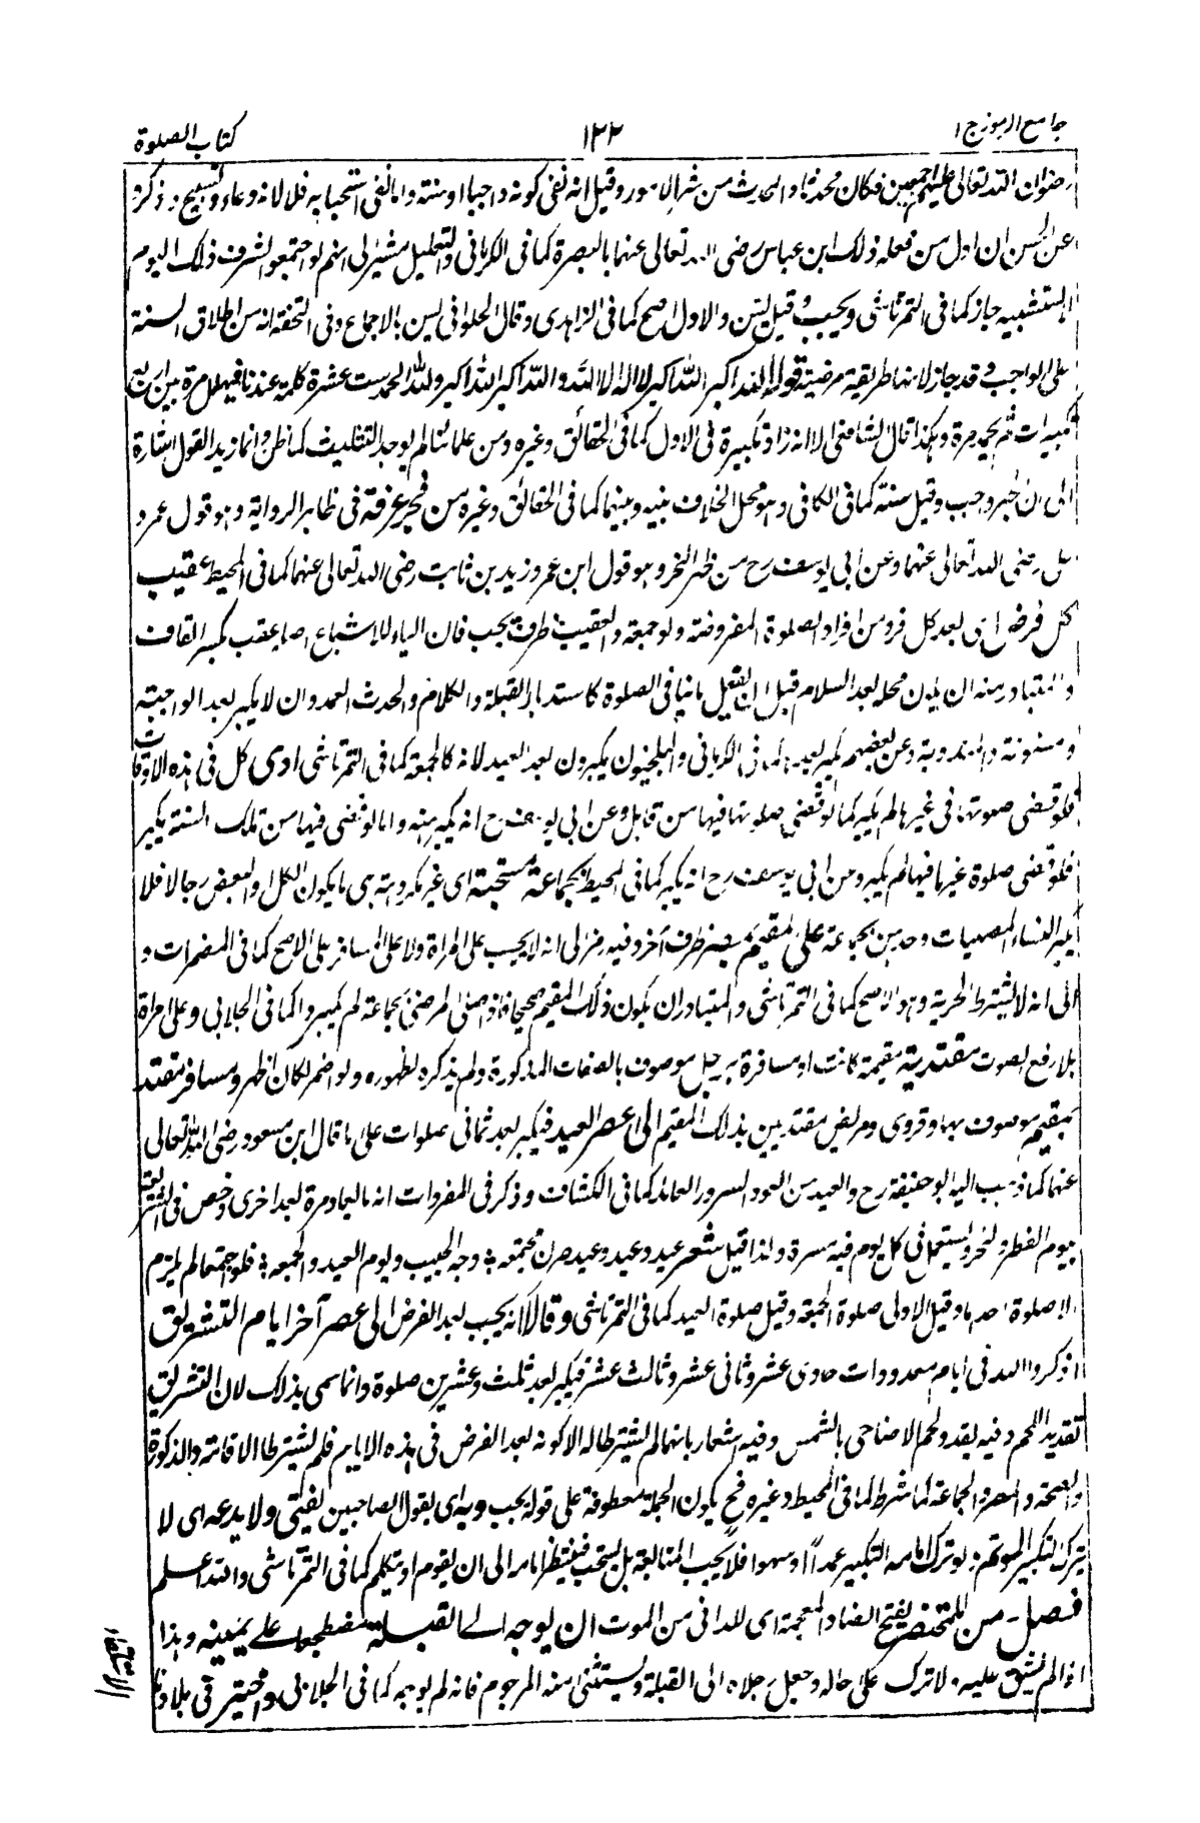 جامع الرموز ج ١
١٢٢
كتاب الصلوة
رضوان الله تعالى عليهم اجمعين فكان محدثا والمحدث من شر الامور وقيل انه نفى كونه واجبا او سنة واما نفى استحبابه فلا لانه دعاء وتسبيح وذكر
عن الحسن ان اول من فعله ذلك ابن عباس رضى الله تعالى عنهما بالبصرة كما فى الكرمانى والتعليل مشير الى انهم لو اجتمعوا لشرف ذلك اليوم
لا للتشبيه جاز كما فى التمرتاشى ويجب وقيل يسن والاول اصح كما فى الزاهدى وقال الحلوانى يسن بالاجماع وفى التحفة انه من اطلاق السنة
على الواجب وقد جاز لانها طريقة مرضية قوله الله اكبر الله اكبر لا اله الا الله والله اكبر الله اكبر ولله الحمد ست عشرة كلمة عندنا فيهلل مرة بين اربع
تكبيرات ثم يحمد مرة وهكذا قال الشافعى الا انه زاد تكبيرة فى الاول كما فى الحقائق وغيره ومن علمائنا لم يوجد التثليث كما ظن وانما زيد القول اشارة
الى ان الجهر وجب وقيل سنة كما فى الكافى وهو محل الخلاف بينه وبينهما كما فى الحقائق وغيره من فجر عرفة فى ظاهر الرواية وهو قول عمر و
على رضى الله تعالى عنهما وعن ابى يوسف رح من ظهر النحر وهو قول ابن عمر وزيد بن ثابت رضى الله تعالى عنهما كما فى المحيط عقيب
كل فرض اى بعد كل فرد من افراد الصلوة المفروضة ولو جمعة والعقيب ظرف يجب فان الياء للاشباع اصله عقب بكسر القاف
والمتبادر منه ان يكون محله بعد السلام قبل ان يفعل ما ينافى الصلوة كاستدبار القبلة والكلام والحدث العمد وان لا يكبر بعد الواجبة
ومسنونة والمندوبة وعن بعضهم يكبر بعد كما فى الكرمانى والبلخيون يكبرون بعد العيد لانه كالجمعة كما فى التمرتاشى ادى كل فى هذه الاوقات
فلو قضى صلوتها فى غيرها لم يكبر كما لو قضى صلوتها فيها من قابل وعن ابى يوسف رح انه يكبر منه واما لو قضى فيها من تلك السنة يكبر
فلو قضى صلوة غيرها فيها لم يكبر وعن ابى يوسف رح انه يكبر كما فى المحيط بجماعة مستحبة اى غير مكروهة هى ما يكون الكل او البعض رجالا فلا
يكبر النساء المصليات وحدهن بجماعة على المقيم بمصر ظرف آخر وفيه رمز الى انه لا يجب على المرأة ولا على المسافر على الاصح كما فى المضمرات و
الى انه لا يشترط الحرية وهو الاصح كما فى التمرتاشى والمتبادر ان يكون ذلك المقيم صحيحا فاذا صلى المرضى بجماعة لم يكبروا كما فى الجلابى وعلى امرأة
بلا رفع الصوت مقتدية مقيمة كانت او مسافرة برجل موصوف بالصفات المذكورة ولم يذكره لظهوره ولو اضمر لكان اظهر ومسافر مقتد
بمقيم موصوف بها وقروى ومريض مقتديين بذلك المقيم الى عصر العيد فيكبر بعد ثمانى صلوات على ما قال ابن مسعود رضى الله تعالى
عنهما كما ذهب اليه ابو حنيفة رح والعيد من العود السرور العائد كما فى الكشاف وذكر فى المفردات انه ما يعاود مرة بعد اخرى وخص فى الشريعة
بيوم الفطر والنحر ويستعمل فى كل يوم فيه مسرة ولذا قيل شعر عيد وعيد وعيد صرن مجتمعة ؛ وجه الحبيب ويوم العيد والجمعة ؛ فلو اجتمعا لم يلزم
الا صلوة احدهما وقيل الاولى صلوة الجمعة وقيل صلوة العيد كما فى التمرتاشى وقالا انه يجب بعد الفرض الى عصر آخر ايام التشريق
اذكروا الله فى ايام معدودات حادى عشر وثانى عشر وثالث عشر فيكبر بعد ثلث وعشرين صلوة وانما سمى بذلك لان التشريق
تقديد اللحم وفيه يقدد لحم الاضاحى بالشمس وفيه اشعار بانهما لم يشترطا له الا كونه بعد الفرض فى هذه الايام فلم يشترطا الاقامة والذكورة
والصحة والمصر والجماعة كما شرط كما فى المحيط وغيره فح يكون الجملة معطوفة على قوله يجب وبه اى بقول الصاحبين يفتى ولا يدعه اى لا
يترك التكبير المؤتم لو ترك امامه التكبير عمدا او سهوا فلا يجب المتابعة بل يستحب فينتظر امامه الى ان يقوم او يتكلم كما فى التمرتاشى والله اعلم
فصل من للمحتضر بفتح الضاد المعجمة اى للدانى من الموت ان يوجه الى القبلة مضطجعا على يمينه وهذا
اذا لم يشق عليه والا ترك على حاله وجعل رجلاه الى القبلة ويستثنى منه المرجوم فانه لم يوجه كما فى الجلابى واختير فى بلادنا
الاستلقاء